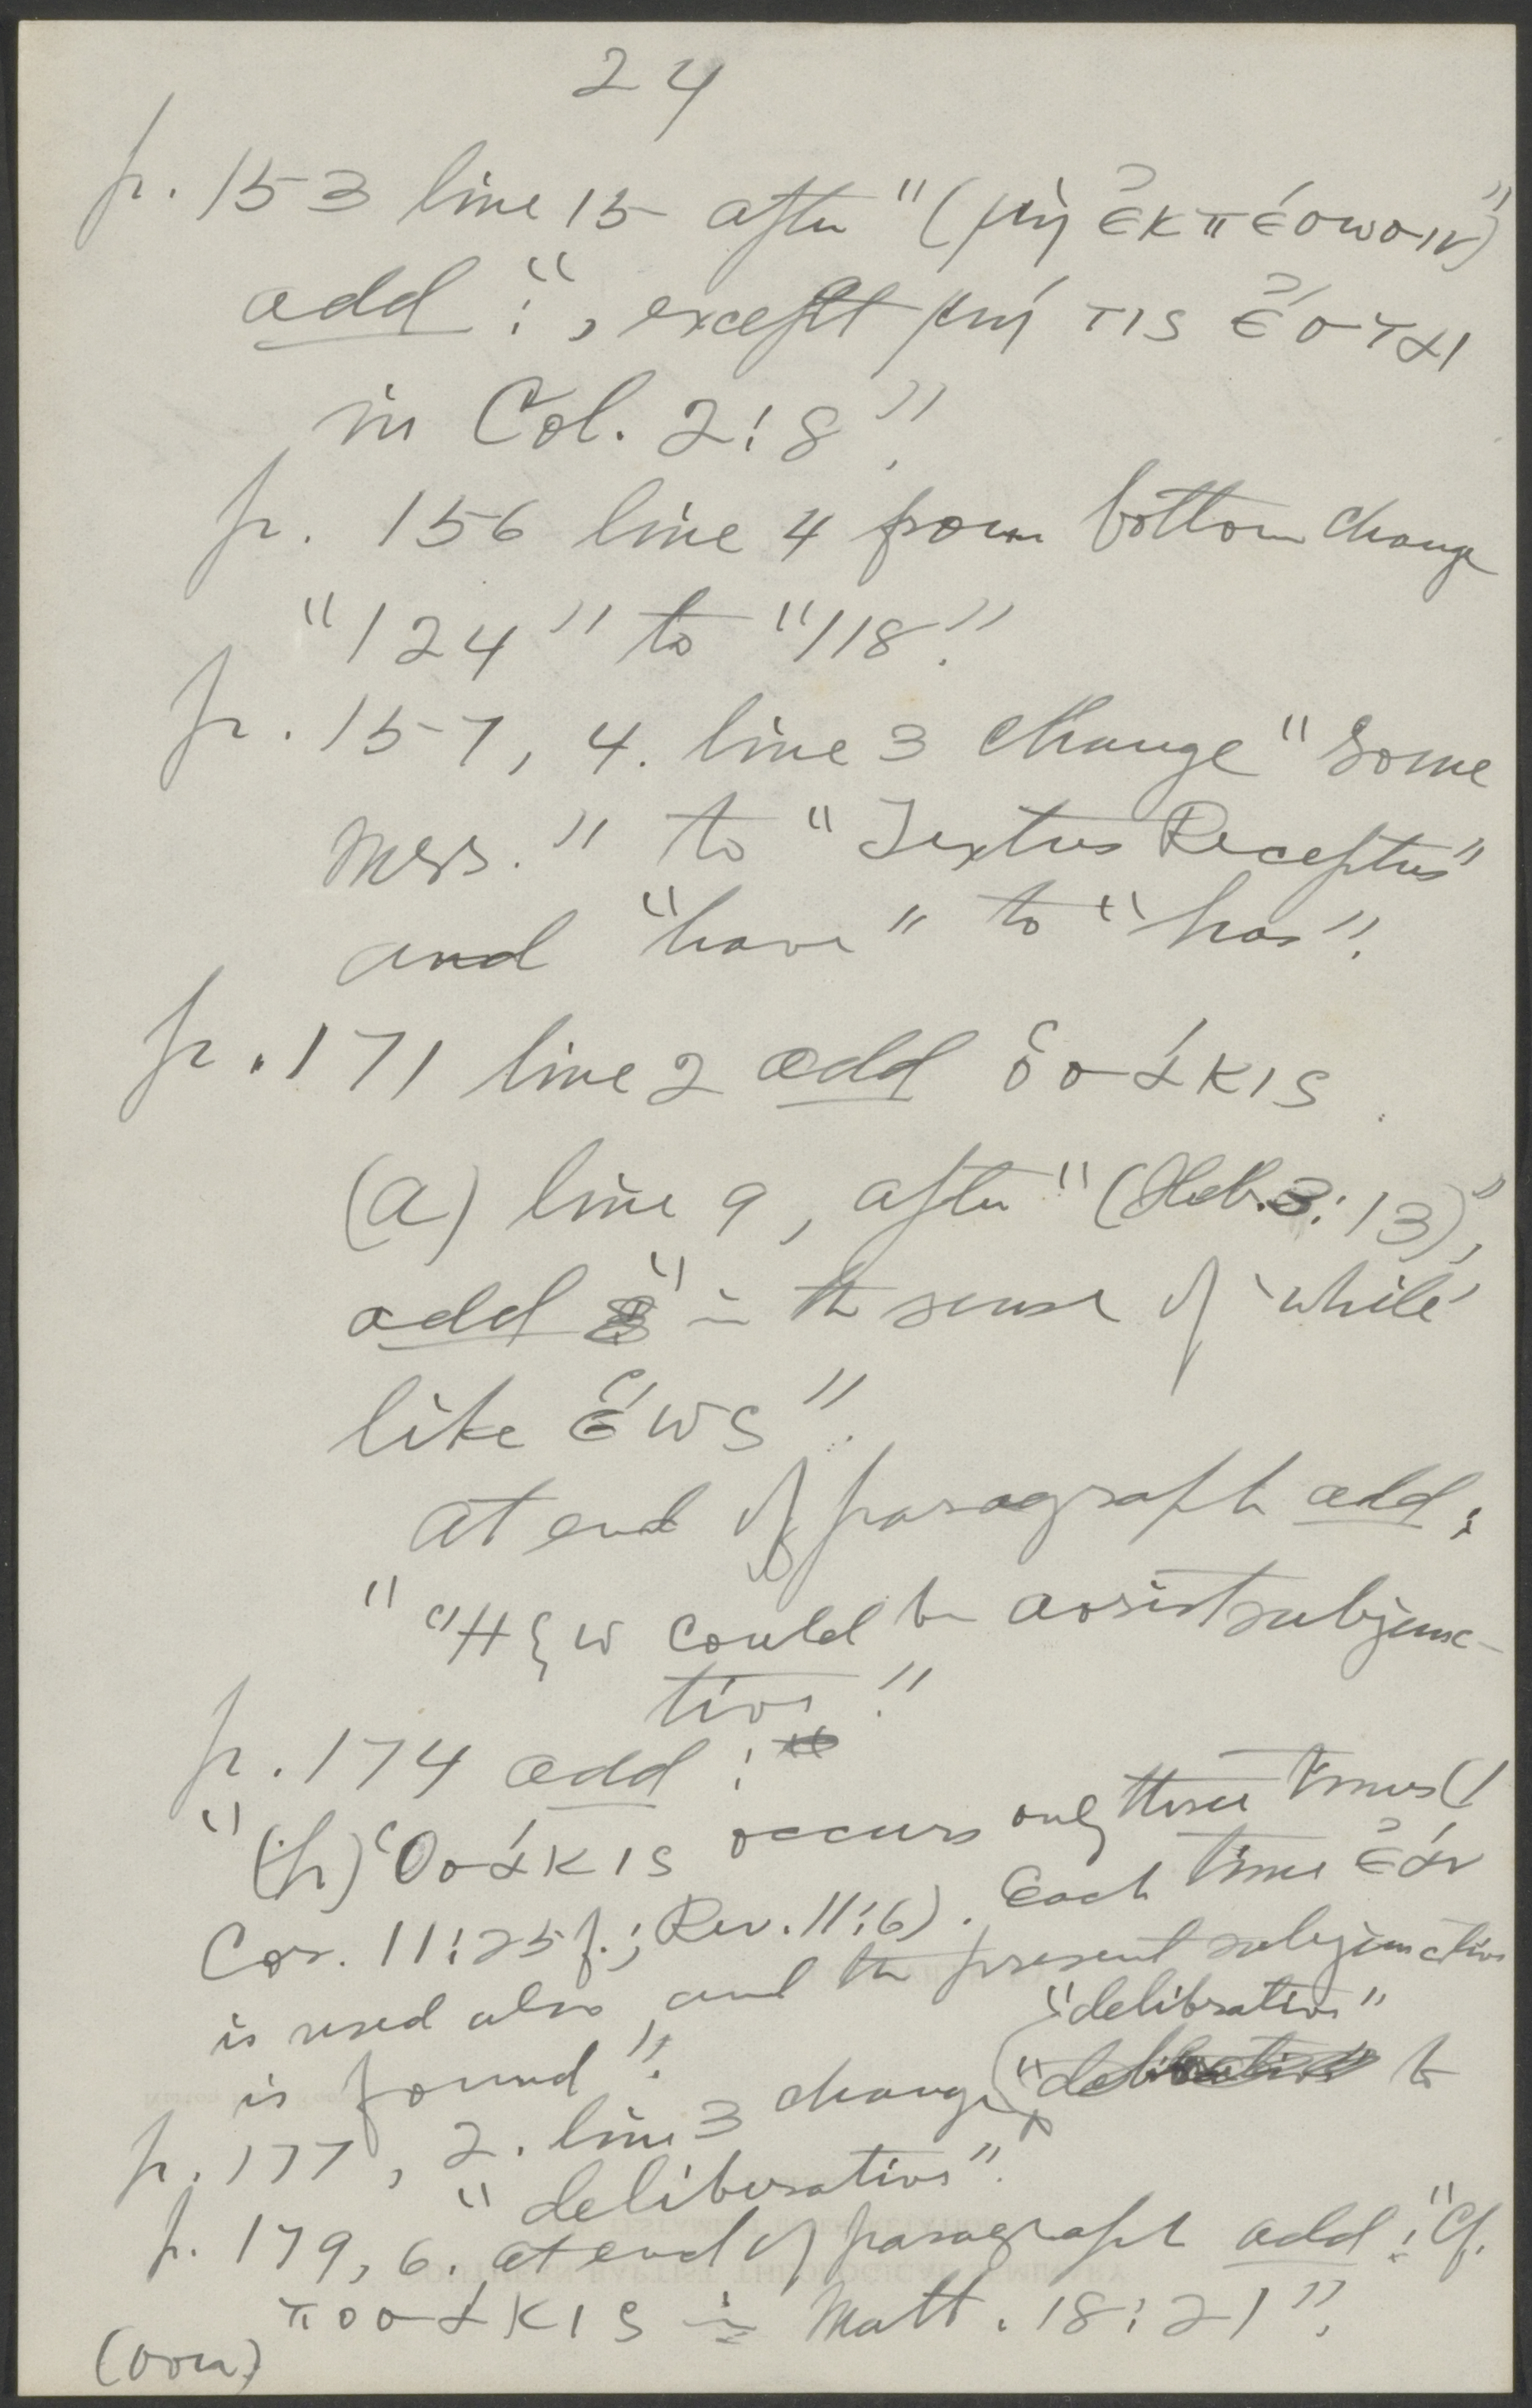 24
p. 153 line 15 after "(μὴ ἐκπέσωσιν)"
add: ", except μή τις ἔσται
in Col. 2:8".
p. 156 line 4 from bottom change
"124" to "118".
p. 157, 4. line 3 change "some
mss." to "Textus Receptus"
and "have" to "has".
p. 171 line 2 add ὁσάκις.
(a) line 9, after "(Heb. 3:13),"
add "in the sense of 'while'
like ἕως".
at end of paragraph add:
"Ἥξω could be aorist subjunc-
tive."
p. 174 add:
"(h) Ὁσάκις occurs only three times (1
Cor. 11:25f.; Rev. 11:6). Each time ἐάν
is used also and the present subjunctive
is found".
"delibrative"
p. 177, 2. line 3 change "deliberative to
"deliberative".
p. 179, 6. at end of paragraph add: "Cf.
ποσάκις in Matt. 18:21".
(over)